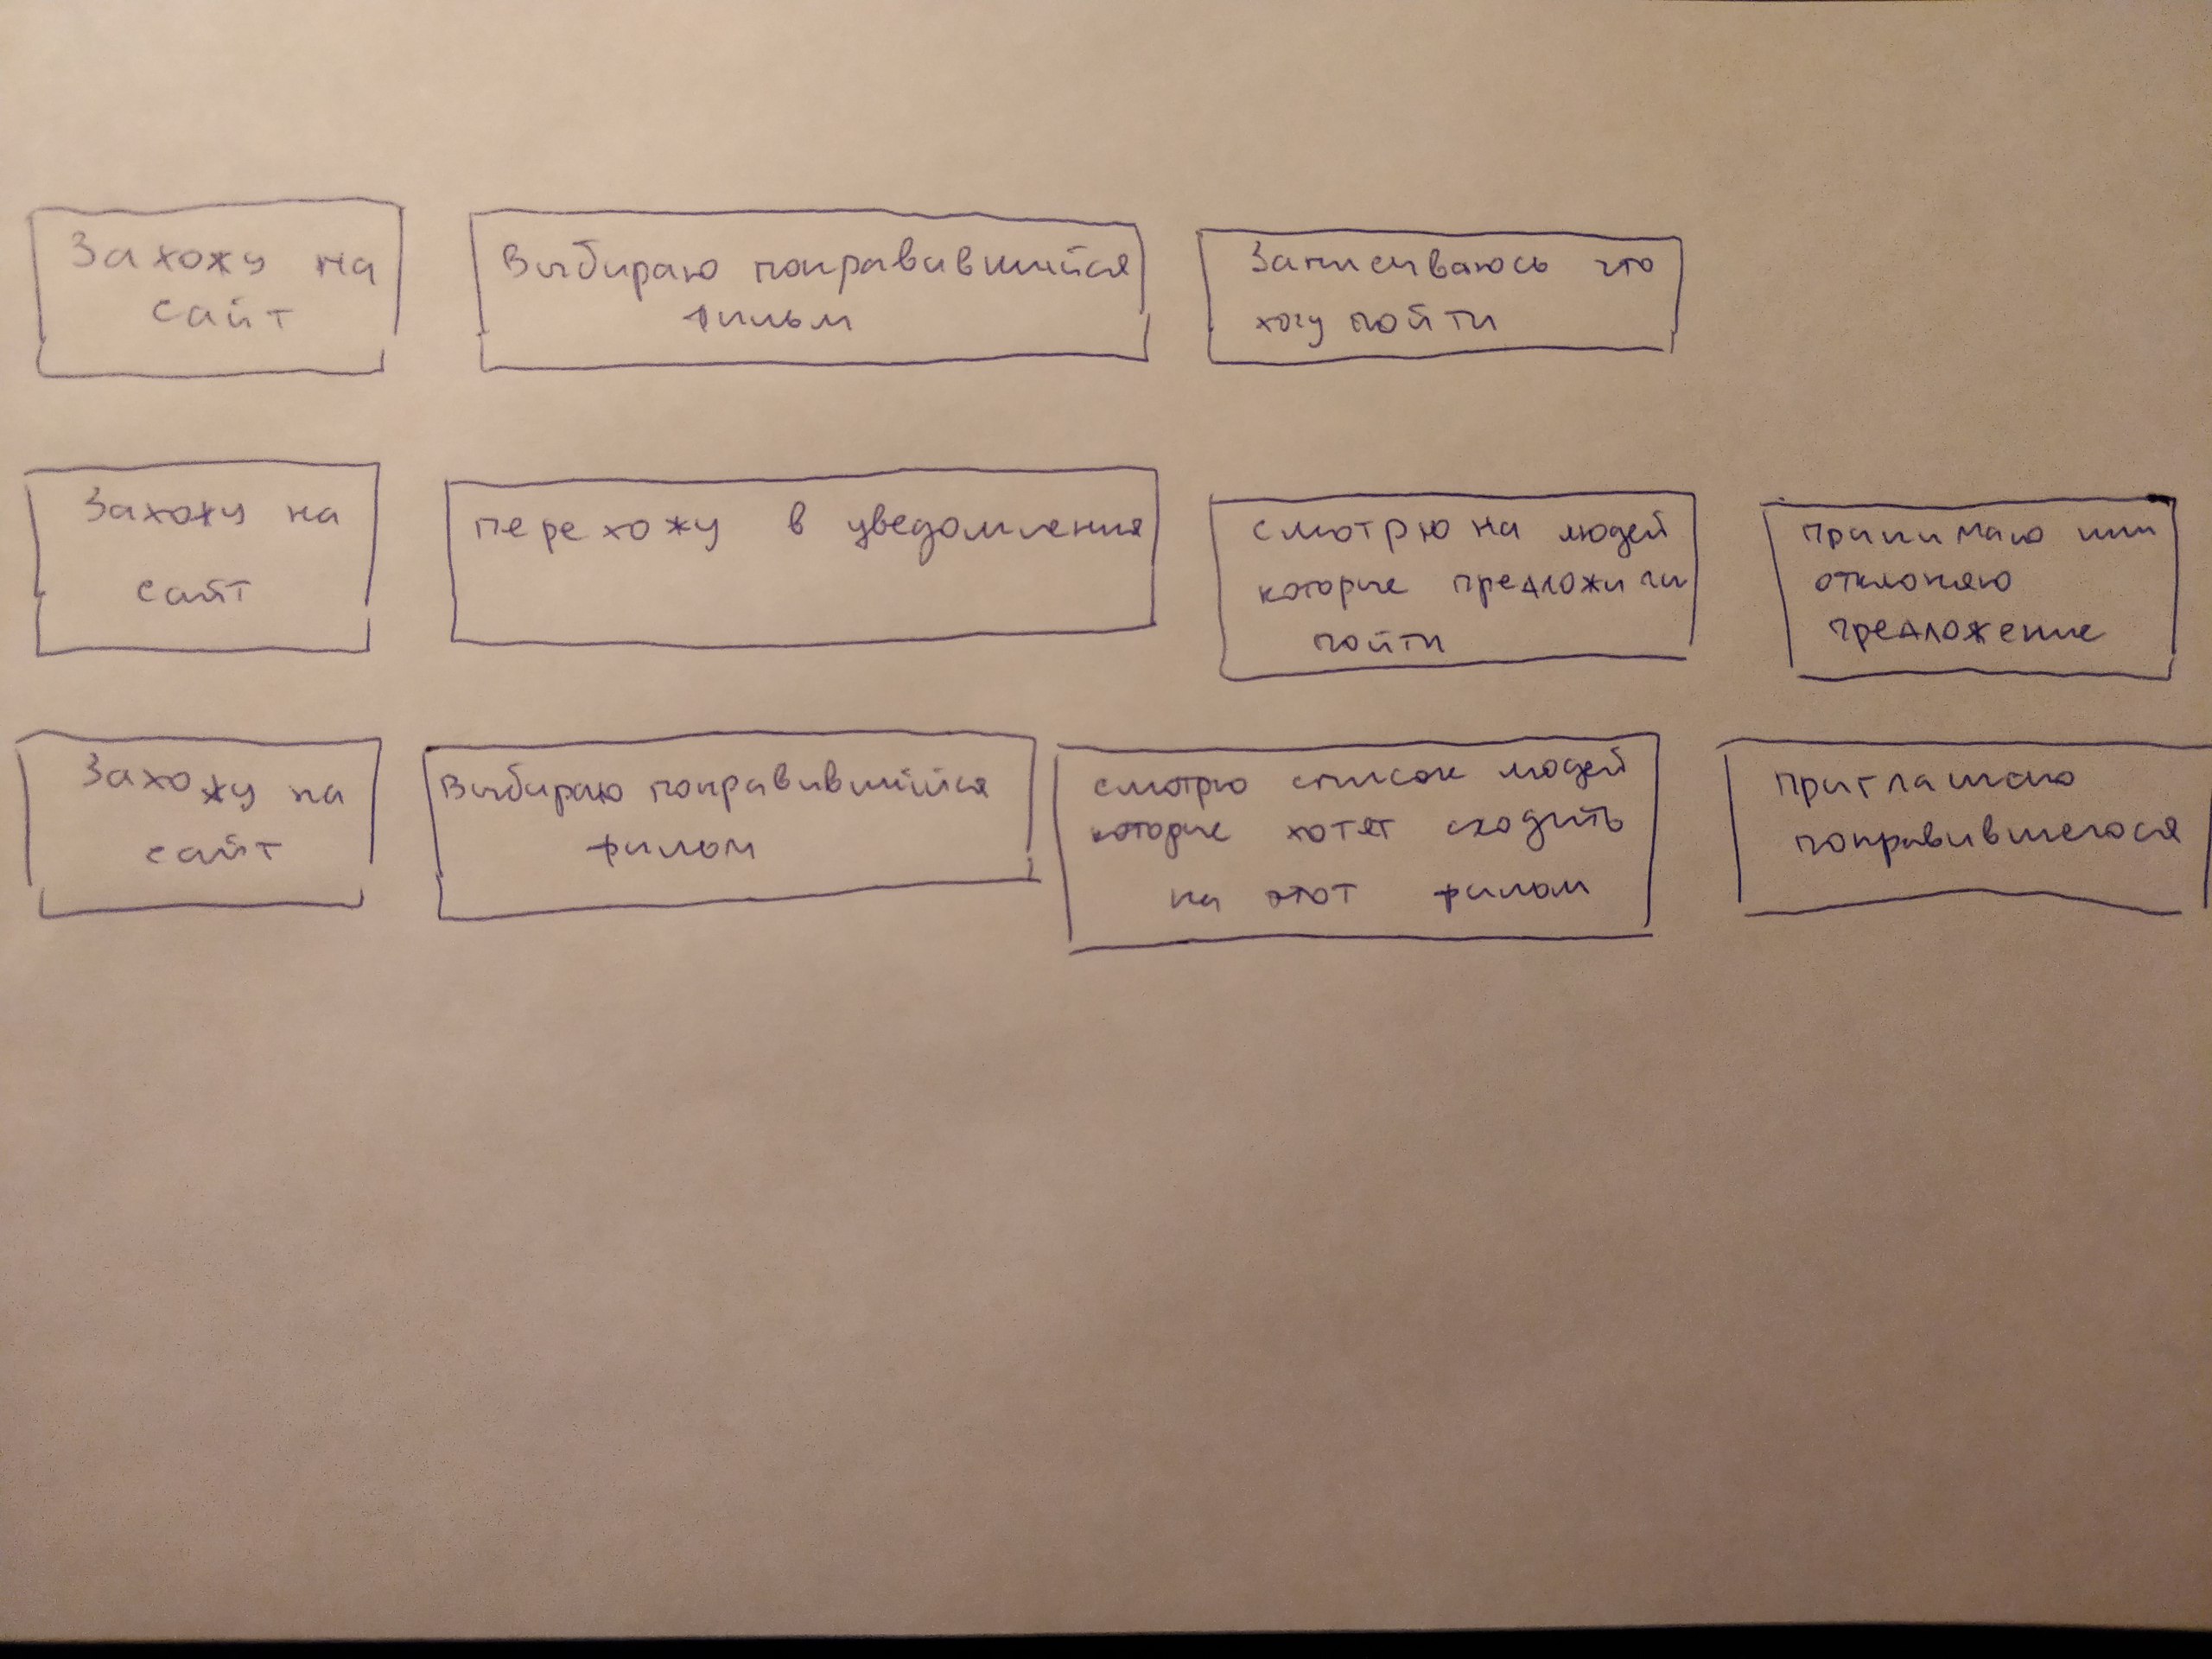 Захожу на
сайт
Выбираю понравившийся
фильм
Записываюсь что
хочу пойти
Захожу на
сайт
перехожу в уведомления
смотрю на людей
которые предложили
пойти
принимаю или
отклоняю
предложение
Захожу на
сайт
Выбираю понравившийся
фильм
смотрю список людей
которые хотят сходить
на этот фильм
приглашаю
понравившегося